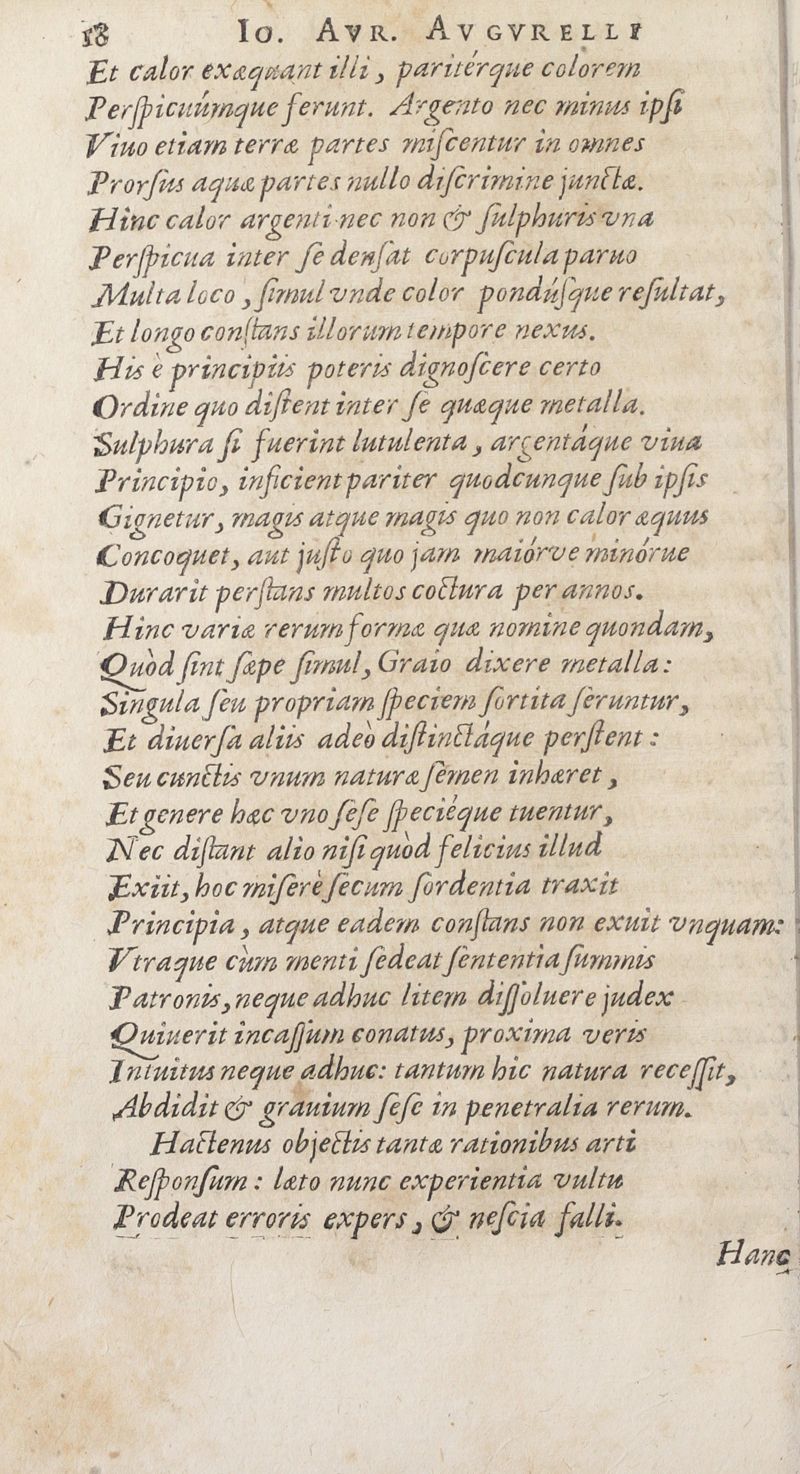 18 Io. AVR. AVGVRELLI
Et calor exæquant illi, paritérque colorem
Perſpicuúmque ferunt. Argento nec minus ipſi
Viuo etiam terræ partes miſcentur in omnes
Prorſus aquæ partes nullo diſcrimine junctæ.
Hinc calor argenti nec non & ſulphuris vna
Perſpicua inter ſe denſat corpuſcula paruo
Multa loco, ſimul vnde color pondúſque reſultat,
Et longo conſtans illorum tempore nexus.
His è principiis poteris dignoſcere certo
Ordine quo diſtent inter ſe quæque metalla.
Sulphura ſi fuerint lutulenta, argentáque viua
Principio, inficient pariter quodcunque ſub ipſis
Gignetur, magis atque magis quo non calor æquus
Concoquet, aut juſto quo jam maiórve minórue
Durarit perſtans multos coctura per annos.
Hinc variæ rerum formæ quæ nomine quondam,
Quòd ſint ſæpe ſimul, Graio dixere metalla:
Singula ſeu propriam ſpeciem ſortita feruntur,
Et diuerſa aliis adeò diſtinctáque perſtent:
Seu cunctis vnum naturæ ſemen inhæret,
Et genere hæc vno ſeſe ſpeciéque tuentur,
Nec diſtant alio niſi quòd felicius illud
Exiit, hoc miſerè ſecum ſordentia traxit
Principia, atque eadem conſtans non exuit vnquam:
Vtraque cùm menti ſedeat ſententia ſummis
Patronis, neque adhuc litem diſſoluere judex
Quiuerit incaſſum conatus, proxima veris
Intuitus neque adhuc: tantum hic natura receſſit,
Abdidit & grauium ſeſe in penetralia rerum.
Hactenus objectis tantæ rationibus arti
Reſponſum: læto nunc experientia vultu
Prodeat erroris expers, & neſcia falli.
Hanc